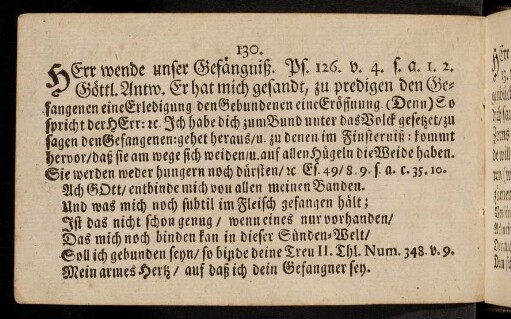 130.
HErr wende unser Gefängniß. Ps. 126. v. 4. s. a. 1. 2.
Göttl. Antw. Er hat mich gesandt, zu predigen den Ge-
fangenen eine Erledigung den Gebundenen eine Eröffnung. (Denn) So
spricht der HErr: ꝛc. Ich habe dich zum Bund unter das Volck gesetzet/ zu
sagen den Gefangenen: gehet heraus/ u. zu denen im Finsterniß: kommt
hervor/ daß sie am wege sich weiden/ u. auf allen Hügeln die Weide haben.
Sie werden weder hungern noch dürsten/ ꝛc Es. 49/ 8. 9. s. a. c. 35. 10.
Ach GOtt/ entbinde mich von allen meinen Banden.
Und was mich noch subtil im Fleisch gefangen hält;
Ist das nicht schon genug/ wenn eines nur vorhanden/
Das mich noch binden kan in dieser Sünden-Welt/
Soll ich gebunden seyn/ so binde deine Treu II. Thl. Num. 348. v. 9.
Mein armes Hertz/ auf daß ich dein Gefangner sey.